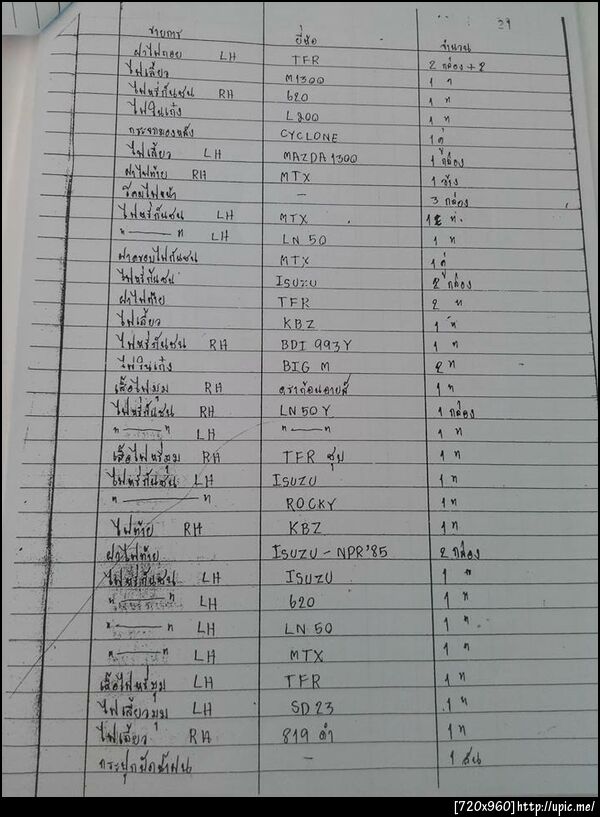 29
รายการ ยี่ห้อ จำนวน
ฝาไฟถอย LH TFR 2 กล่อง + 2
ไฟเลี้ยว M1300 1 "
ไฟหรี่กันชน RH 620 1 "
ไฟในเก๋ง L200 1 "
กระจกมองหลัง CYCLONE 1 คู่
ไฟเลี้ยว LH MAZDA 1300 1 กล่อง
ฝาไฟท้าย RH MTX 1 ข้าง
ไฟหน้า - 3 กล่อง
ไฟหรี่กันชน LH MTX "
" — " LH LN 50 1 "
ฝาครอบไฟกันชน MTX 1 คู่
ไฟหรี่กันชน ISUZU 2 กล่อง
ฝาไฟท้าย TFR 2 "
ไฟเลี้ยว KBZ 1 "
ไฟหรี่กันชน RH BDI 993Y 1 "
ไฟในเก๋ง BIG M 2 "
เสื้อไฟมุม RH ดราก้อนอายส์ 1 "
ไฟหรี่กันชน RH LN 50 Y 1 กล่อง
" — " LH " — " 1 "
เสื้อไฟหรี่มุม RH TFR ชุบ 1 "
ไฟหรี่กันชน LH ISUZU 1 "
" — " ROCKY 1 "
ไฟท้าย RH KBZ 1 "
ฝาไฟท้าย ISUZU - NPR'85 2 กล่อง
ไฟหรี่กันชน LH ISUZU 1 "
" — " LH 620 1 "
" — " LH LN 50 1 "
" — " LH MTX 1 "
เสื้อไฟหรี่มุม LH TFR 1 "
ไฟเลี้ยวมุม LH SD 23 1 "
ไฟเลี้ยว RH 819 ดำ 1 "
กระปุกฉีดน้ำฝน - 1 อัน
[720x960] http://upic.me/